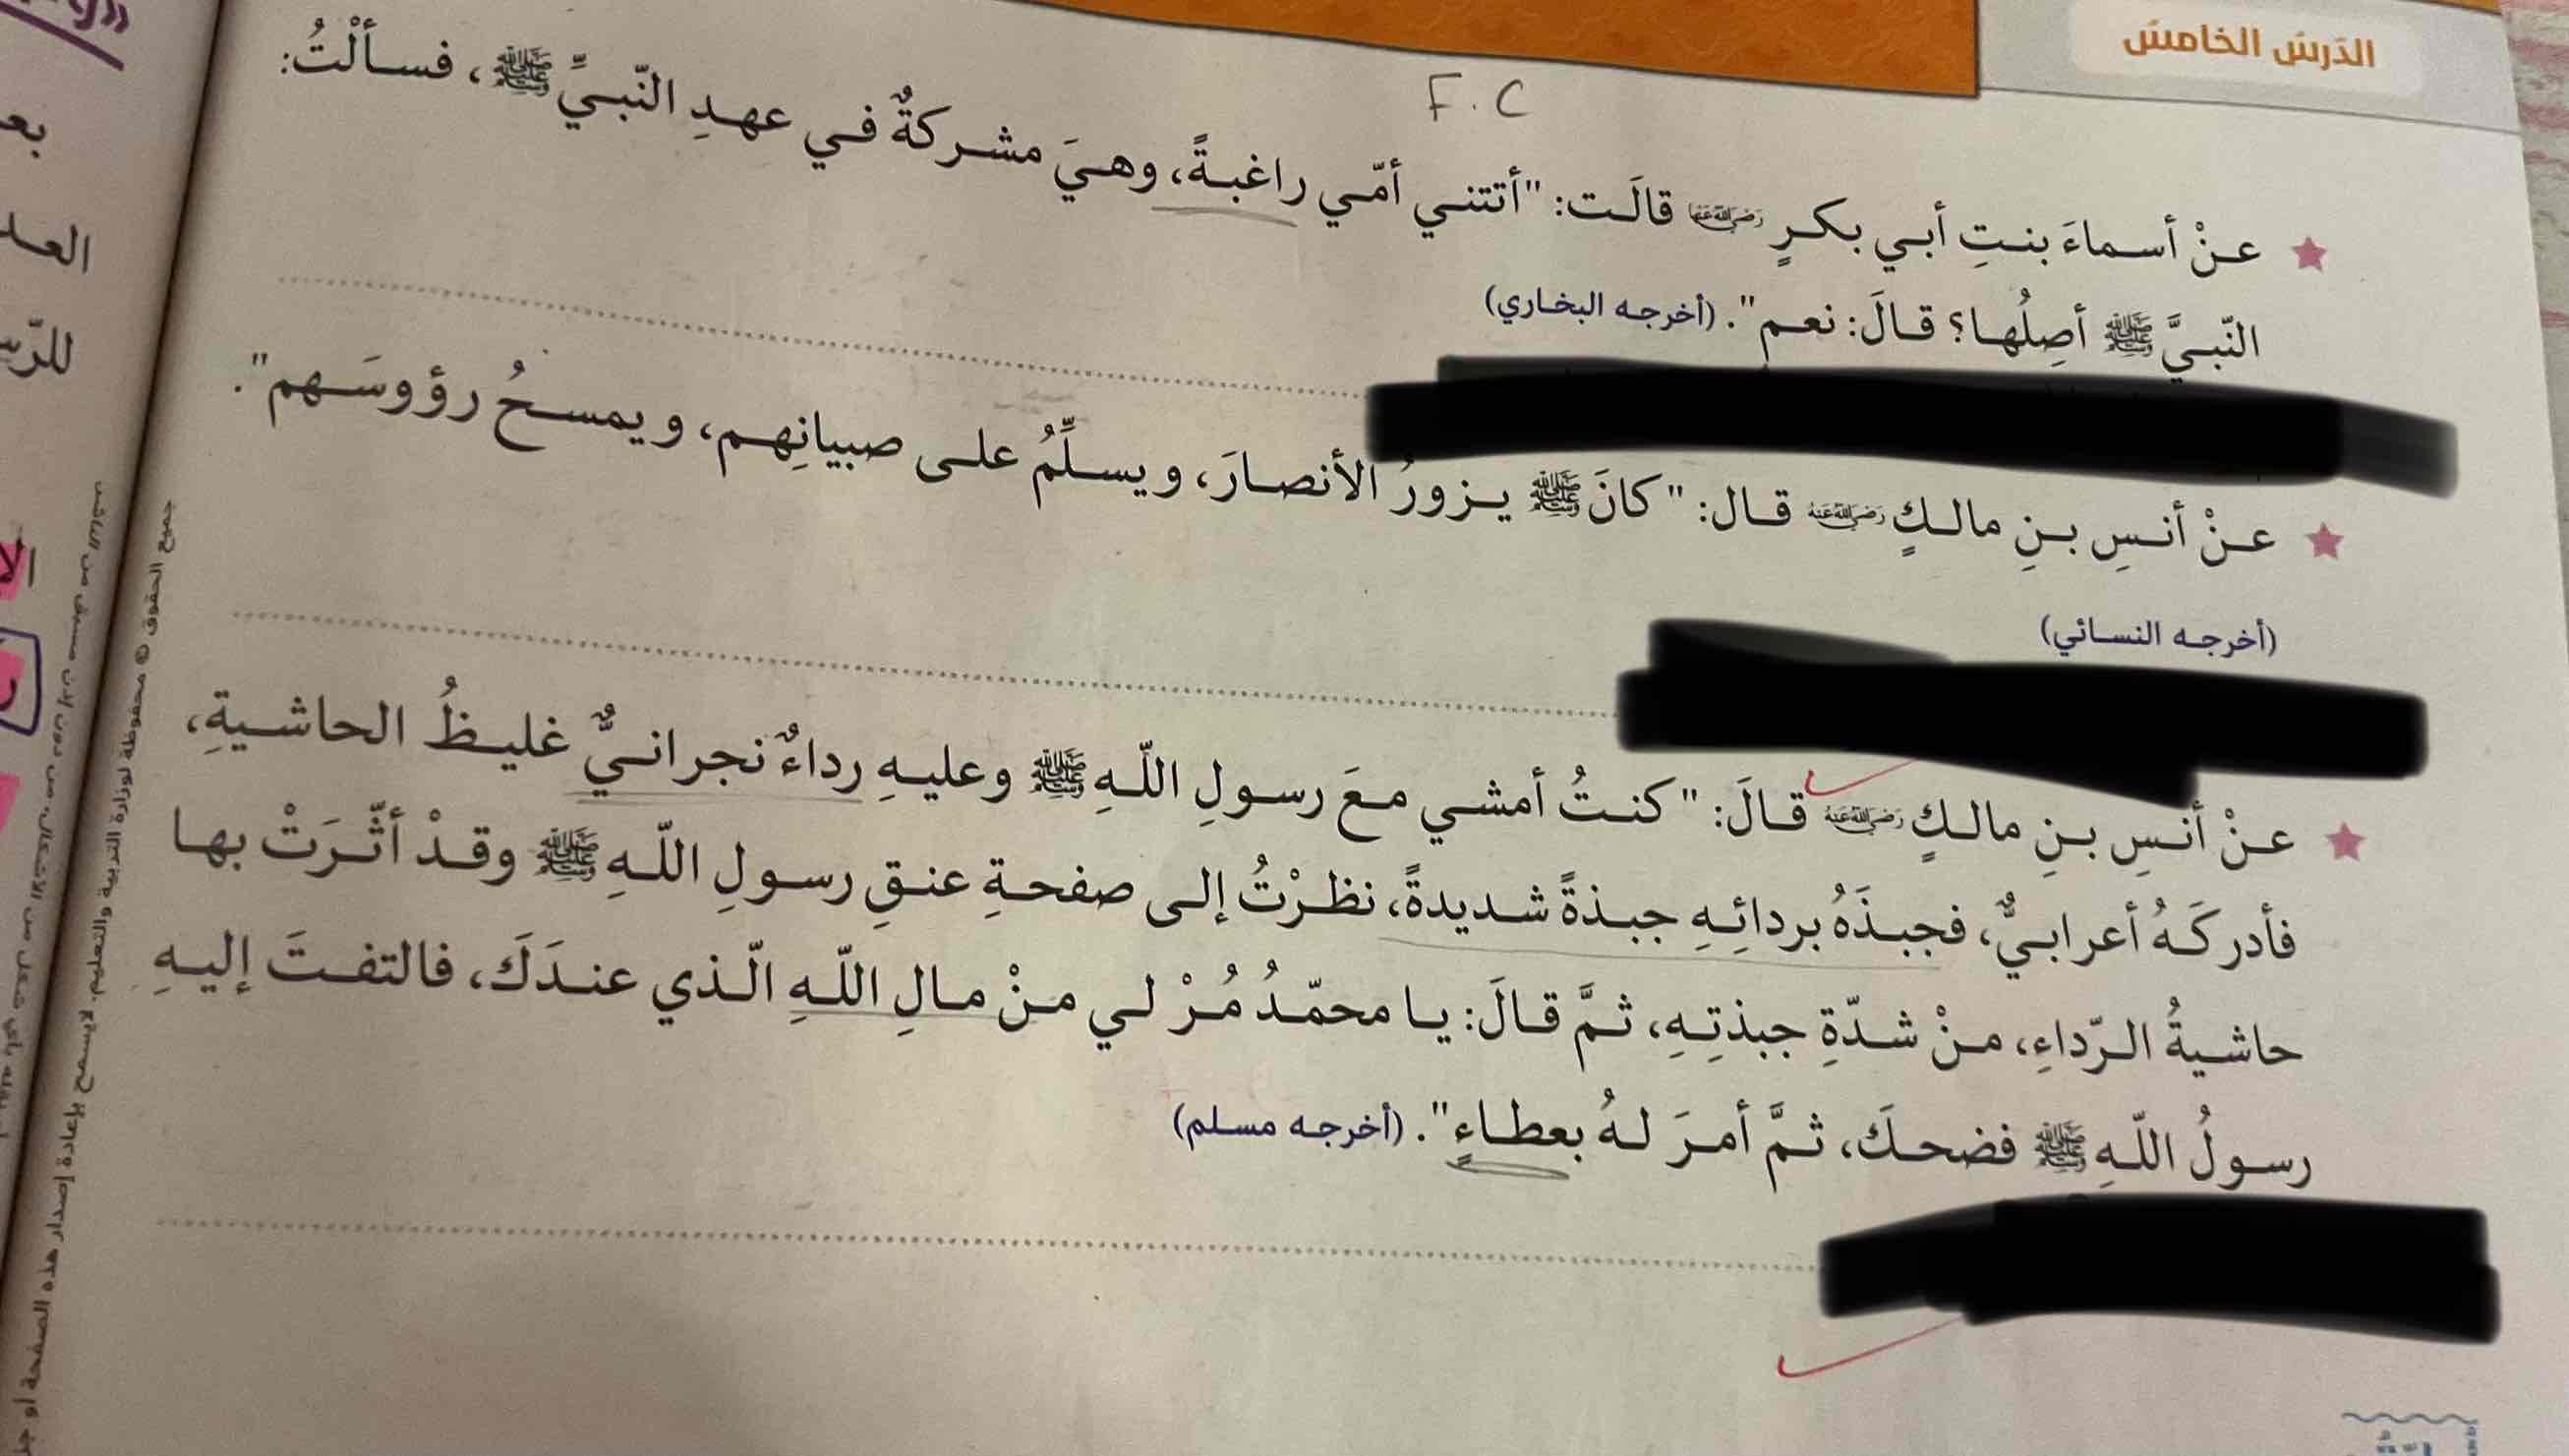 الدّرسُ الخامسُ
F.C
عنْ أسماءَ بنتِ أبي بكرٍ رضي الله عنها قالَت: "أتتني أمّي راغبةً، وهيَ مشركةٌ في عهدِ النّبيِّ ﷺ، فسألْتُ:
النّبيَّ ﷺ أصِلُها؟ قالَ: نعم". (أخرجه البخاري)
عنْ أنسِ بنِ مالكٍ رضي الله عنه قال: "كانَ ﷺ يزورُ الأنصارَ، ويسلِّمُ على صبيانِهم، ويمسحُ رؤوسَهم".
(أخرجه النسائي)
عنْ أنسِ بنِ مالكٍ رضي الله عنه قالَ: "كنتُ أمشي معَ رسولِ اللّهِ ﷺ وعليهِ رداءٌ نجرانيٌّ غليظُ الحاشيةِ،
فأدركَهُ أعرابيٌّ، فجبذَهُ بردائِهِ جبذةً شديدةً، نظرْتُ إلى صفحةِ عنقِ رسولِ اللّهِ ﷺ وقدْ أثّرَتْ بها
حاشيةُ الرّداءِ، منْ شدّةِ جبذتِهِ، ثمَّ قالَ: يا محمّدُ مُرْ لي منْ مالِ اللّهِ الّذي عندَكَ، فالتفتَ إليهِ
رسولُ اللّهِ ﷺ فضحكَ، ثمَّ أمرَ لهُ بعطاءٍ". (أخرجه مسلم)
جميع الحقوق © محفوظة لوزارة التربية والتعليم. لا يسمح بإعادة إصدار هذه الصفحة أو
بعد